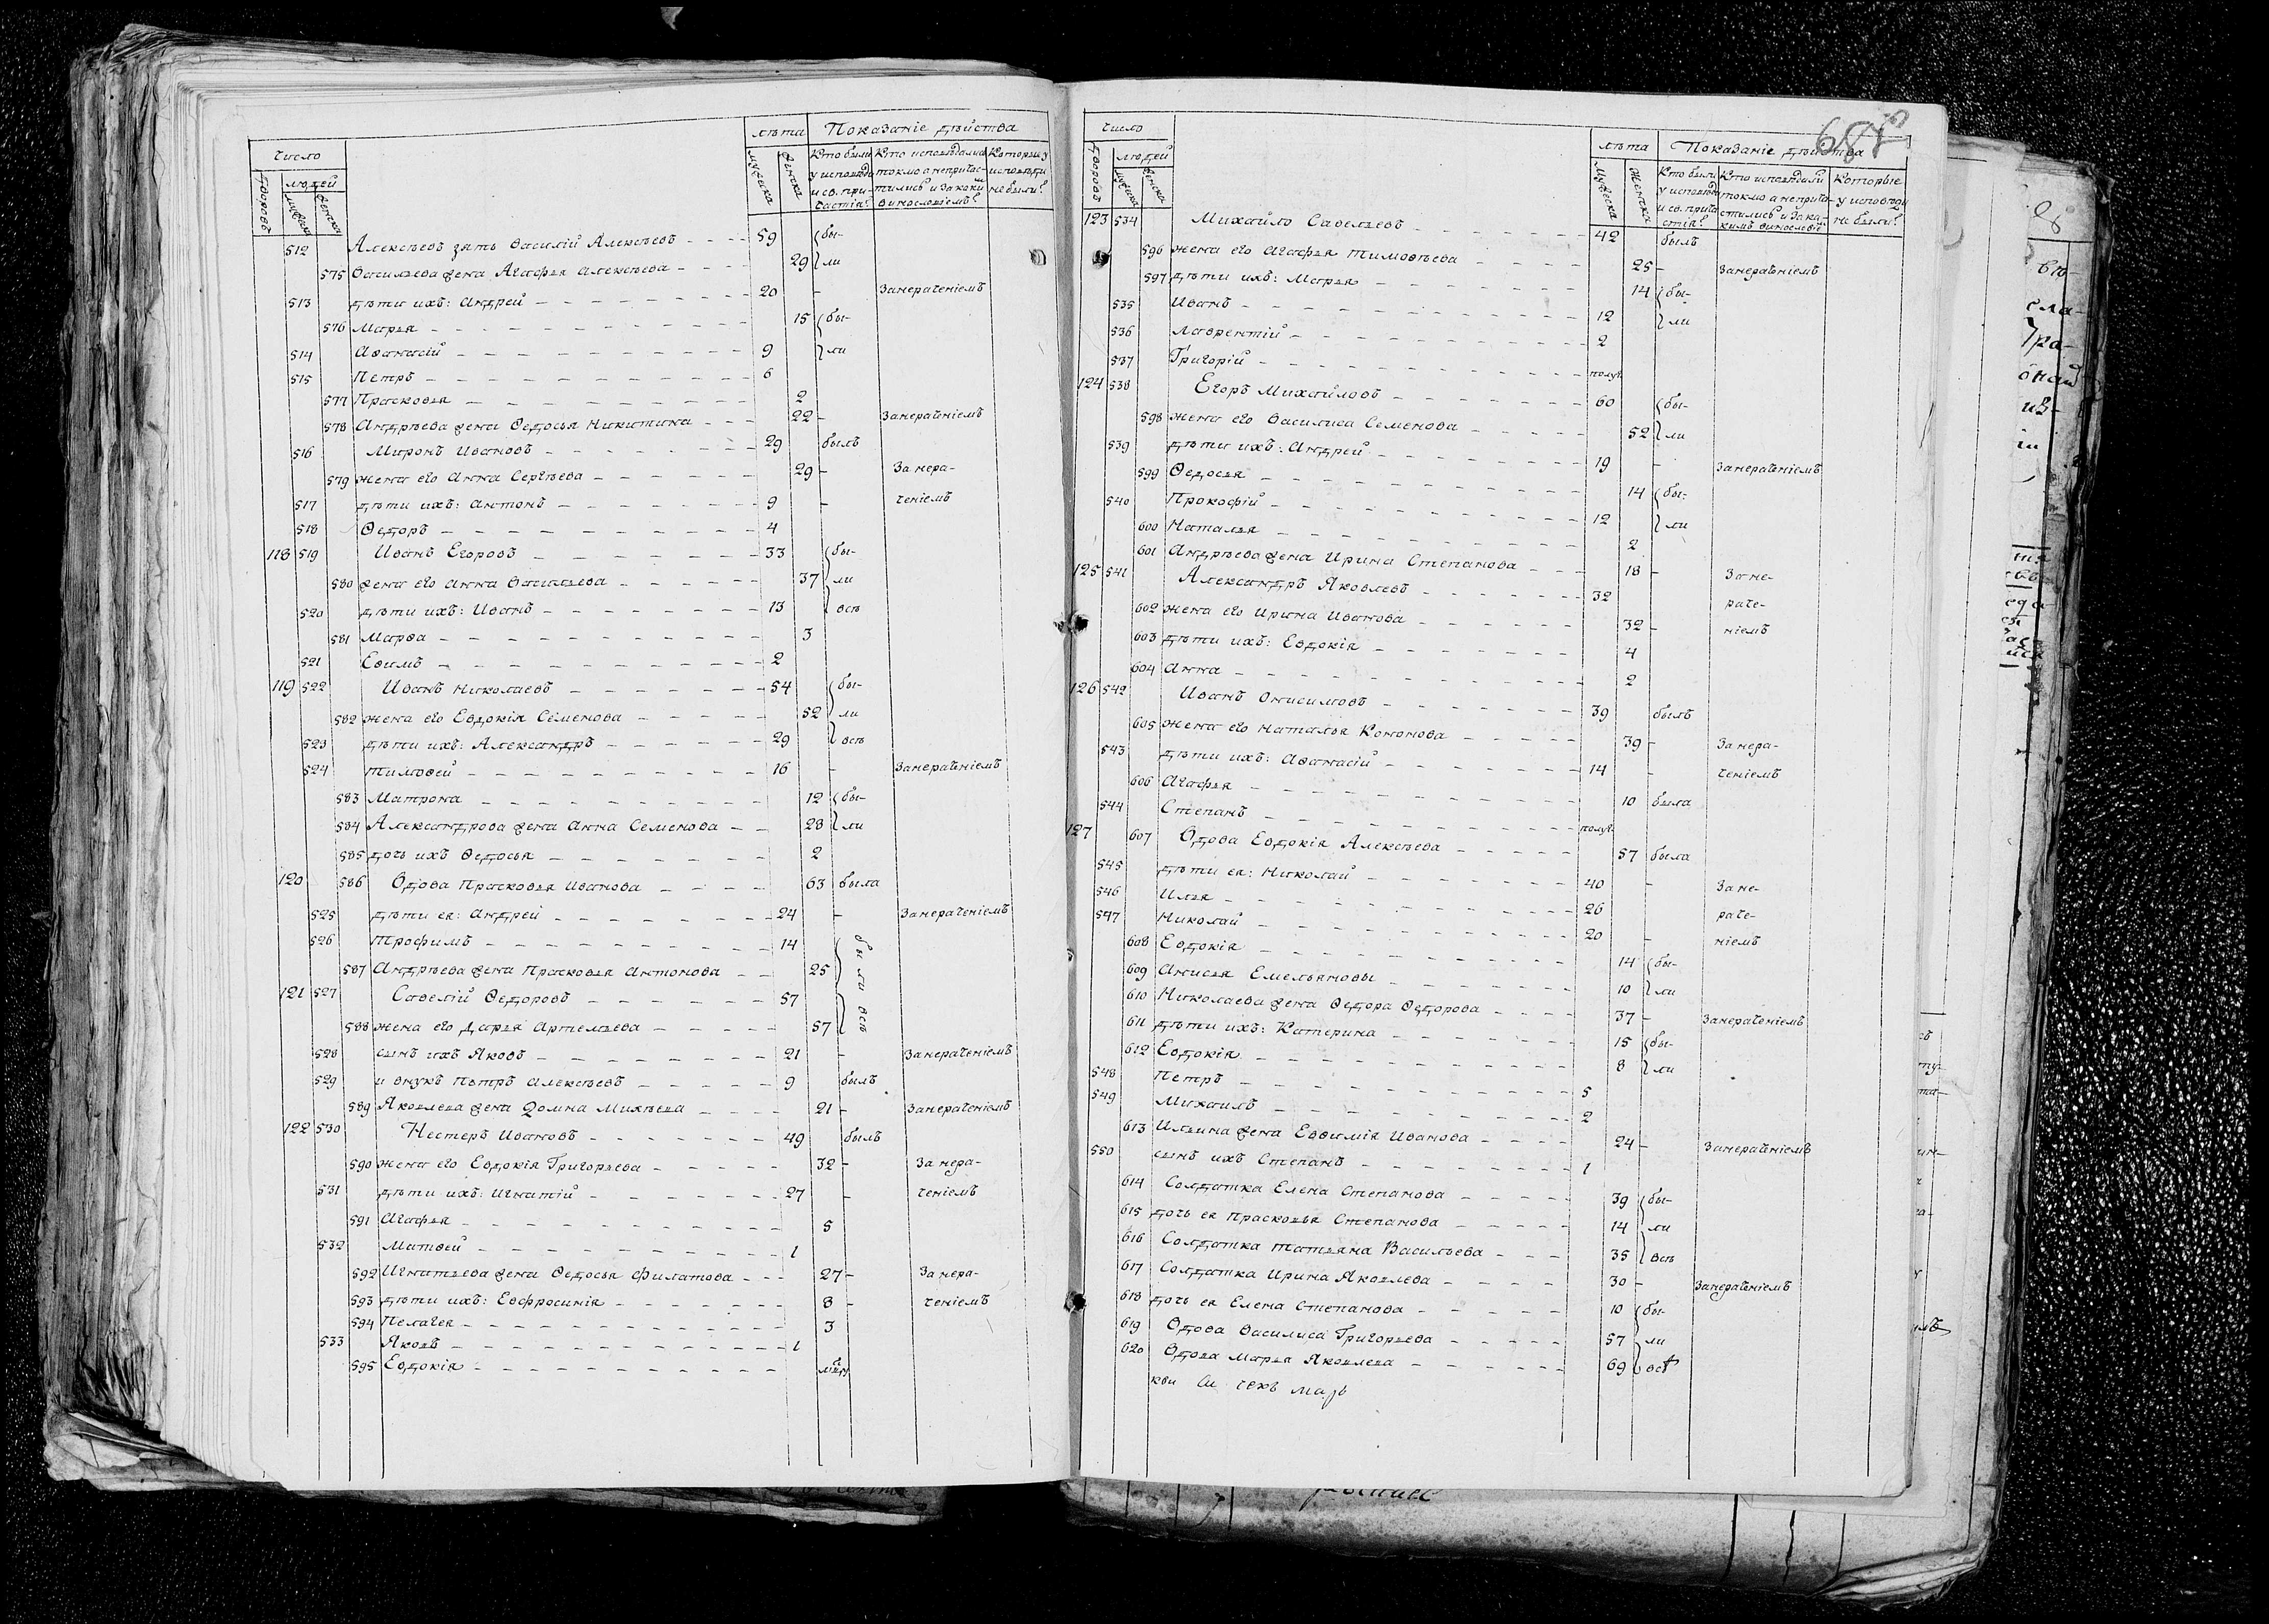 Число
лѣта Показаніе дѣйства
дворовъ людей мужеска женска
мужеска женска
Кто были у исповѣди и св. при-частія? Кто исповѣдался токмо а непричас-тились и за коимъ винословіемъ? Которыи у исповѣди не были?
512 Алексѣевъ зять Василій Алексѣевъ 59 бы-
575 Васильева жена Агафья Алексѣева 29 ли
513 дѣти ихъ: Андрей 20 - Занераченіемъ
576 Марья 15 бы-
514 Аѳанасій 9 ли
515 Петръ 6
577 Прасковья 2
578 Андрѣева жена Ѳедосья Никитина 22 - Занераченіемъ
516 Миронъ Ивановъ 29 былъ
579 жена его Анна Сергѣева 29 - Занера-
517 дѣти ихъ: Антонъ 9 - ченіемъ
518 Ѳедоръ 4
118 519 Иванъ Егоровъ 33 бы-
580 жена его Анна Васильева 37 ли
520 дѣти ихъ: Иванъ 13 всѣ
581 Марѳа 3
521 Еѳимъ 2
119 522 Иванъ Николаевъ 54 бы-
582 жена его Евдокія Семенова 52 ли
523 дѣти ихъ: Александръ 29 всѣ
524 Тимоѳей 16 - Занераченіемъ
583 Матрона 12 бы-
584 Александрова жена Анна Семенова 28 ли
585 дочь ихъ Ѳедосья 2
120 586 Вдова Прасковья Иванова 63 была
525 дѣти ея: Андрей 24 - Занераченіемъ
526 Трофимъ 14 были всѣ
587 Андрѣева жена Прасковья Антонова 25
121 527 Савелій Ѳедоровъ 57
588 жена его Дарья Артельева 57
528 сынъ ихъ Яковъ 21 - Занераченіемъ
529 и внукъ Петръ Алексѣевъ 9 былъ
589 Яковлева жена Домна Михѣева 21 - Занераченіемъ
122 530 Нестеръ Ивановъ 49 былъ
590 жена его Евдокія Григорьева 32 - Занера-
531 дѣти ихъ: Игнатій 27 - ченіемъ
591 Агафья 5
532 Матвей 1
592 Игнатьева жена Ѳедосья Филатова 27 - Занера-
593 дѣти ихъ: Евфросинія 8 - ченіемъ
594 Пелагея 3
533 Яковъ 1
595 Евдокія
Число
лѣта Показаніе дѣйства
дворовъ людей мужеска женска
мужеска женска
Кто были у исповѣди и св. прича-стія? Кто исповѣдали токмо а неприча-стились и за ка-кимъ винословіе Которые у исповѣди не были?
123 534 Михайло Савельевъ 42 былъ
596 жена его Агафья Тимоѳѣева 25 - Занераченіемъ
597 дѣти ихъ: Марья 14 бы-
535 Иванъ 12 ли
536 Лаврентій 2
537 Григорій полуг
124 538 Егоръ Михайловъ 60 бы-
598 жена его Василиса Семенова 52 ли
539 дѣти ихъ: Андрей 19 - Занераченіемъ
599 Ѳедосья 14 бы-
540 Прокофій 12 ли
600 Наталья 2
601 Андрѣева жена Ирина Степанова 18 - Зане-
125 541 Александръ Яковлевъ 32 раче-
602 жена его Ирина Иванова 32 - ніемъ
603 дѣти ихъ: Евдокія 4
604 Анна 2
126 542 Иванъ Онисимовъ 39 былъ
605 жена его Наталья Кононова 39 - Занера-
543 дѣти ихъ: Аѳанасій 14 - ченіемъ
606 Агафья 10 была
544 Степанъ полуг
127 607 Вдова Евдокія Алексѣева 57 была
545 дѣти ея: Николай 40 - Зане-
546 Илья 26 - раче-
547 Николай 20 - ніемъ
608 Евдокія 14 бы-
609 Анисья Емельяновы 10 ли
610 Николаева жена Ѳедора Ѳедорова 37 - Занераченіемъ
611 дѣти ихъ: Катерина 15 бы-
612 Евдокія 8 ли
548 Петръ 5
549 Михаилъ 2
613 Ильина жена Евѳимія Иванова 24 - Занераченіемъ
550 сынъ ихъ Степанъ 1
614 Солдатка Елена Степанова 39 бы-
615 дочь ея Прасковья Степанова 14 ли
616 Солдатка Татьяна Васильева 35 всѣ
617 Солдатка Ирина Яковлева 30 - Занераченіемъ
618 дочь ея Елена Степанова 10 бы-
619 Вдова Василиса Григорьева 57 ли
620 Вдова Марья Яковлева 69 всѣ